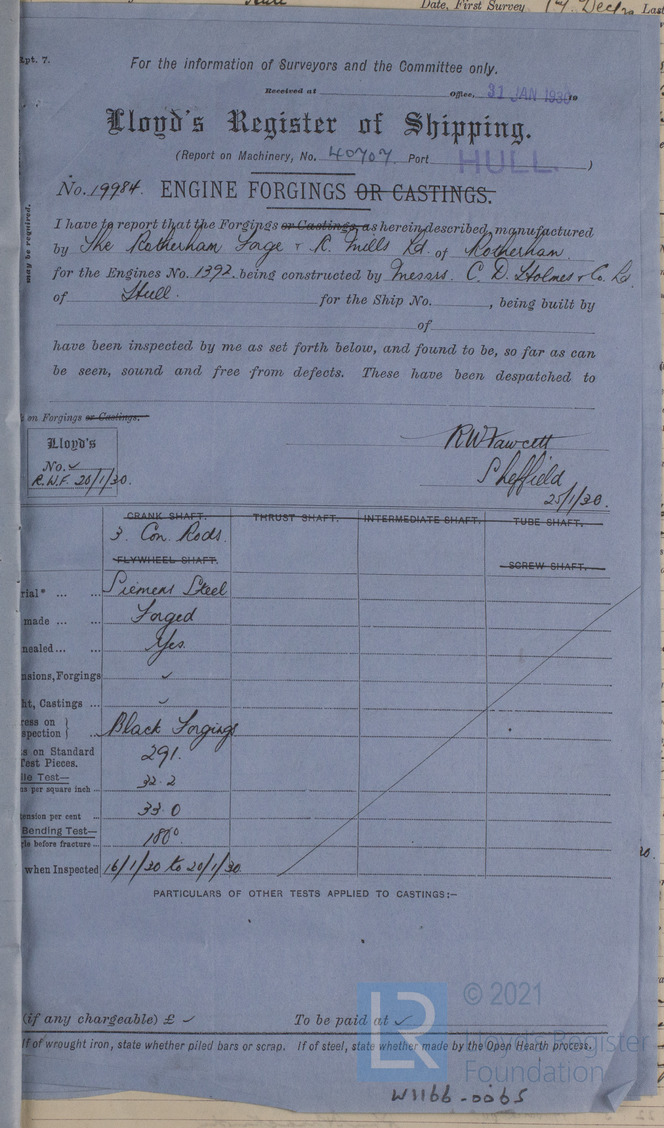 Date, First Survey 17 Dec
Rpt. 7.
For the information of Surveyors and the Committee only.
Received at Office, 31 JAN 1930
Lloyd's Register of Shipping.
(Report on Machinery, No. 40707 Port HULL )
No. 19984. ENGINE FORGINGS OR CASTINGS.
may be required.
I have to report that the Forgings or Castings, as herein described, manufactured
by The Rotherham Forge & R. Mills Ld. of Rotherham
for the Engines No. 1392. being constructed by Messrs. C. D. Holmes & Co. Ld.
of Hull. for the Ship No. , being built by
of
have been inspected by me as set forth below, and found to be, so far as can
be seen, sound and free from defects. These have been despatched to
on Forgings or Castings.
Lloyd's
No. ✓
R.W.F. 20/1/30.
R W Fawcett
Sheffield
25/1/30.
CRANK SHAFT. THRUST SHAFT. INTERMEDIATE SHAFT. TUBE SHAFT.
3. Con. Rods.
FLYWHEEL SHAFT. SCREW SHAFT.
rial* ... ... Siemens Steel
made ... ... Forged
nealed ... ... Yes.
nsions, Forgings ✓
ht, Castings ... ✓
ress on
spection } ... Black Forgings
s on Standard
Test Pieces. 291.
ile Test—
ns per square inch ... 32.2
tension per cent ... 33.0
Bending Test—
gle before fracture ... 180°
when Inspected 16/1/30 to 20/1/30.
PARTICULARS OF OTHER TESTS APPLIED TO CASTINGS:–
(if any chargeable) £ ✓ To be paid at ✓
If of wrought iron, state whether piled bars or scrap. If of steel, state whether made by the Open Hearth process.
LR © 2021
Lloyd's Register
Foundation
W1166-0065